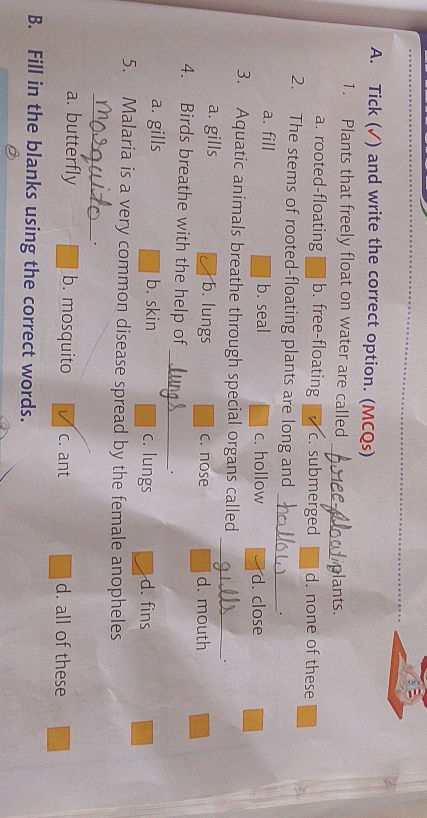 A. Tick (✓) and write the correct option. (MCQs)
1. Plants that freely float on water are called free floating plants.
a. rooted-floating b. free-floating ✓ c. submerged d. none of these
2. The stems of rooted-floating plants are long and hallow.
a. fill b. seal c. hollow ✓ d. close
3. Aquatic animals breathe through special organs called gills.
a. gills ✓ b. lungs c. nose d. mouth
4. Birds breathe with the help of lungs.
a. gills b. skin c. lungs ✓ d. fins
5. Malaria is a very common disease spread by the female anopheles
mosquito.
a. butterfly b. mosquito ✓ c. ant d. all of these
B. Fill in the blanks using the correct words.